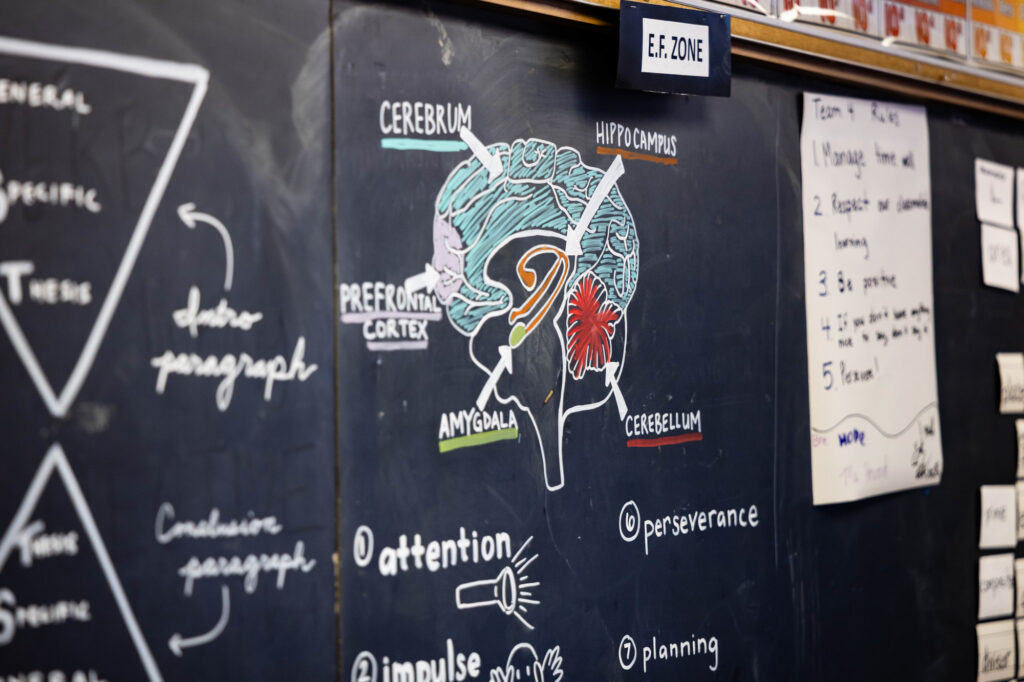 ENERAL
SPECIFIC
THESIS
Intro
paragraph
THESIS
Conclusion
paragraph
SPECIFIC
ENERAL
E.F. ZONE
CEREBRUM
HIPPOCAMPUS
PREFRONTAL
CORTEX
AMYGDALA
CEREBELLUM
① attention
② impulse
⑥ perseverance
⑦ planning
Team 4 Rules
1. Manage time well
2. Respect our classmates
learning
3. Be positive
4. If you don't have anything
nice to say, don't say it
5.
HOPE